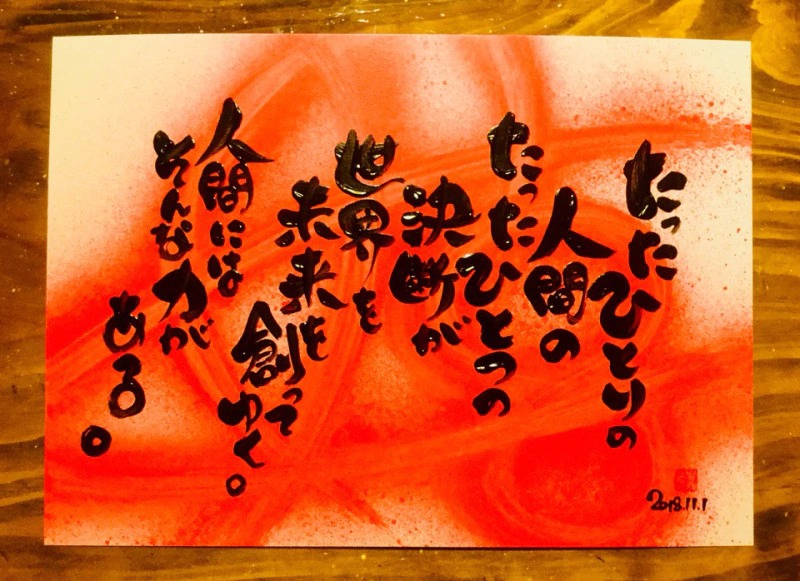 たった
ひとりの
人間の
たった
ひとつの
決断が
世界を
未来を
創って
ゆく。
人間には
そんな力が
ある。
2018.11.1